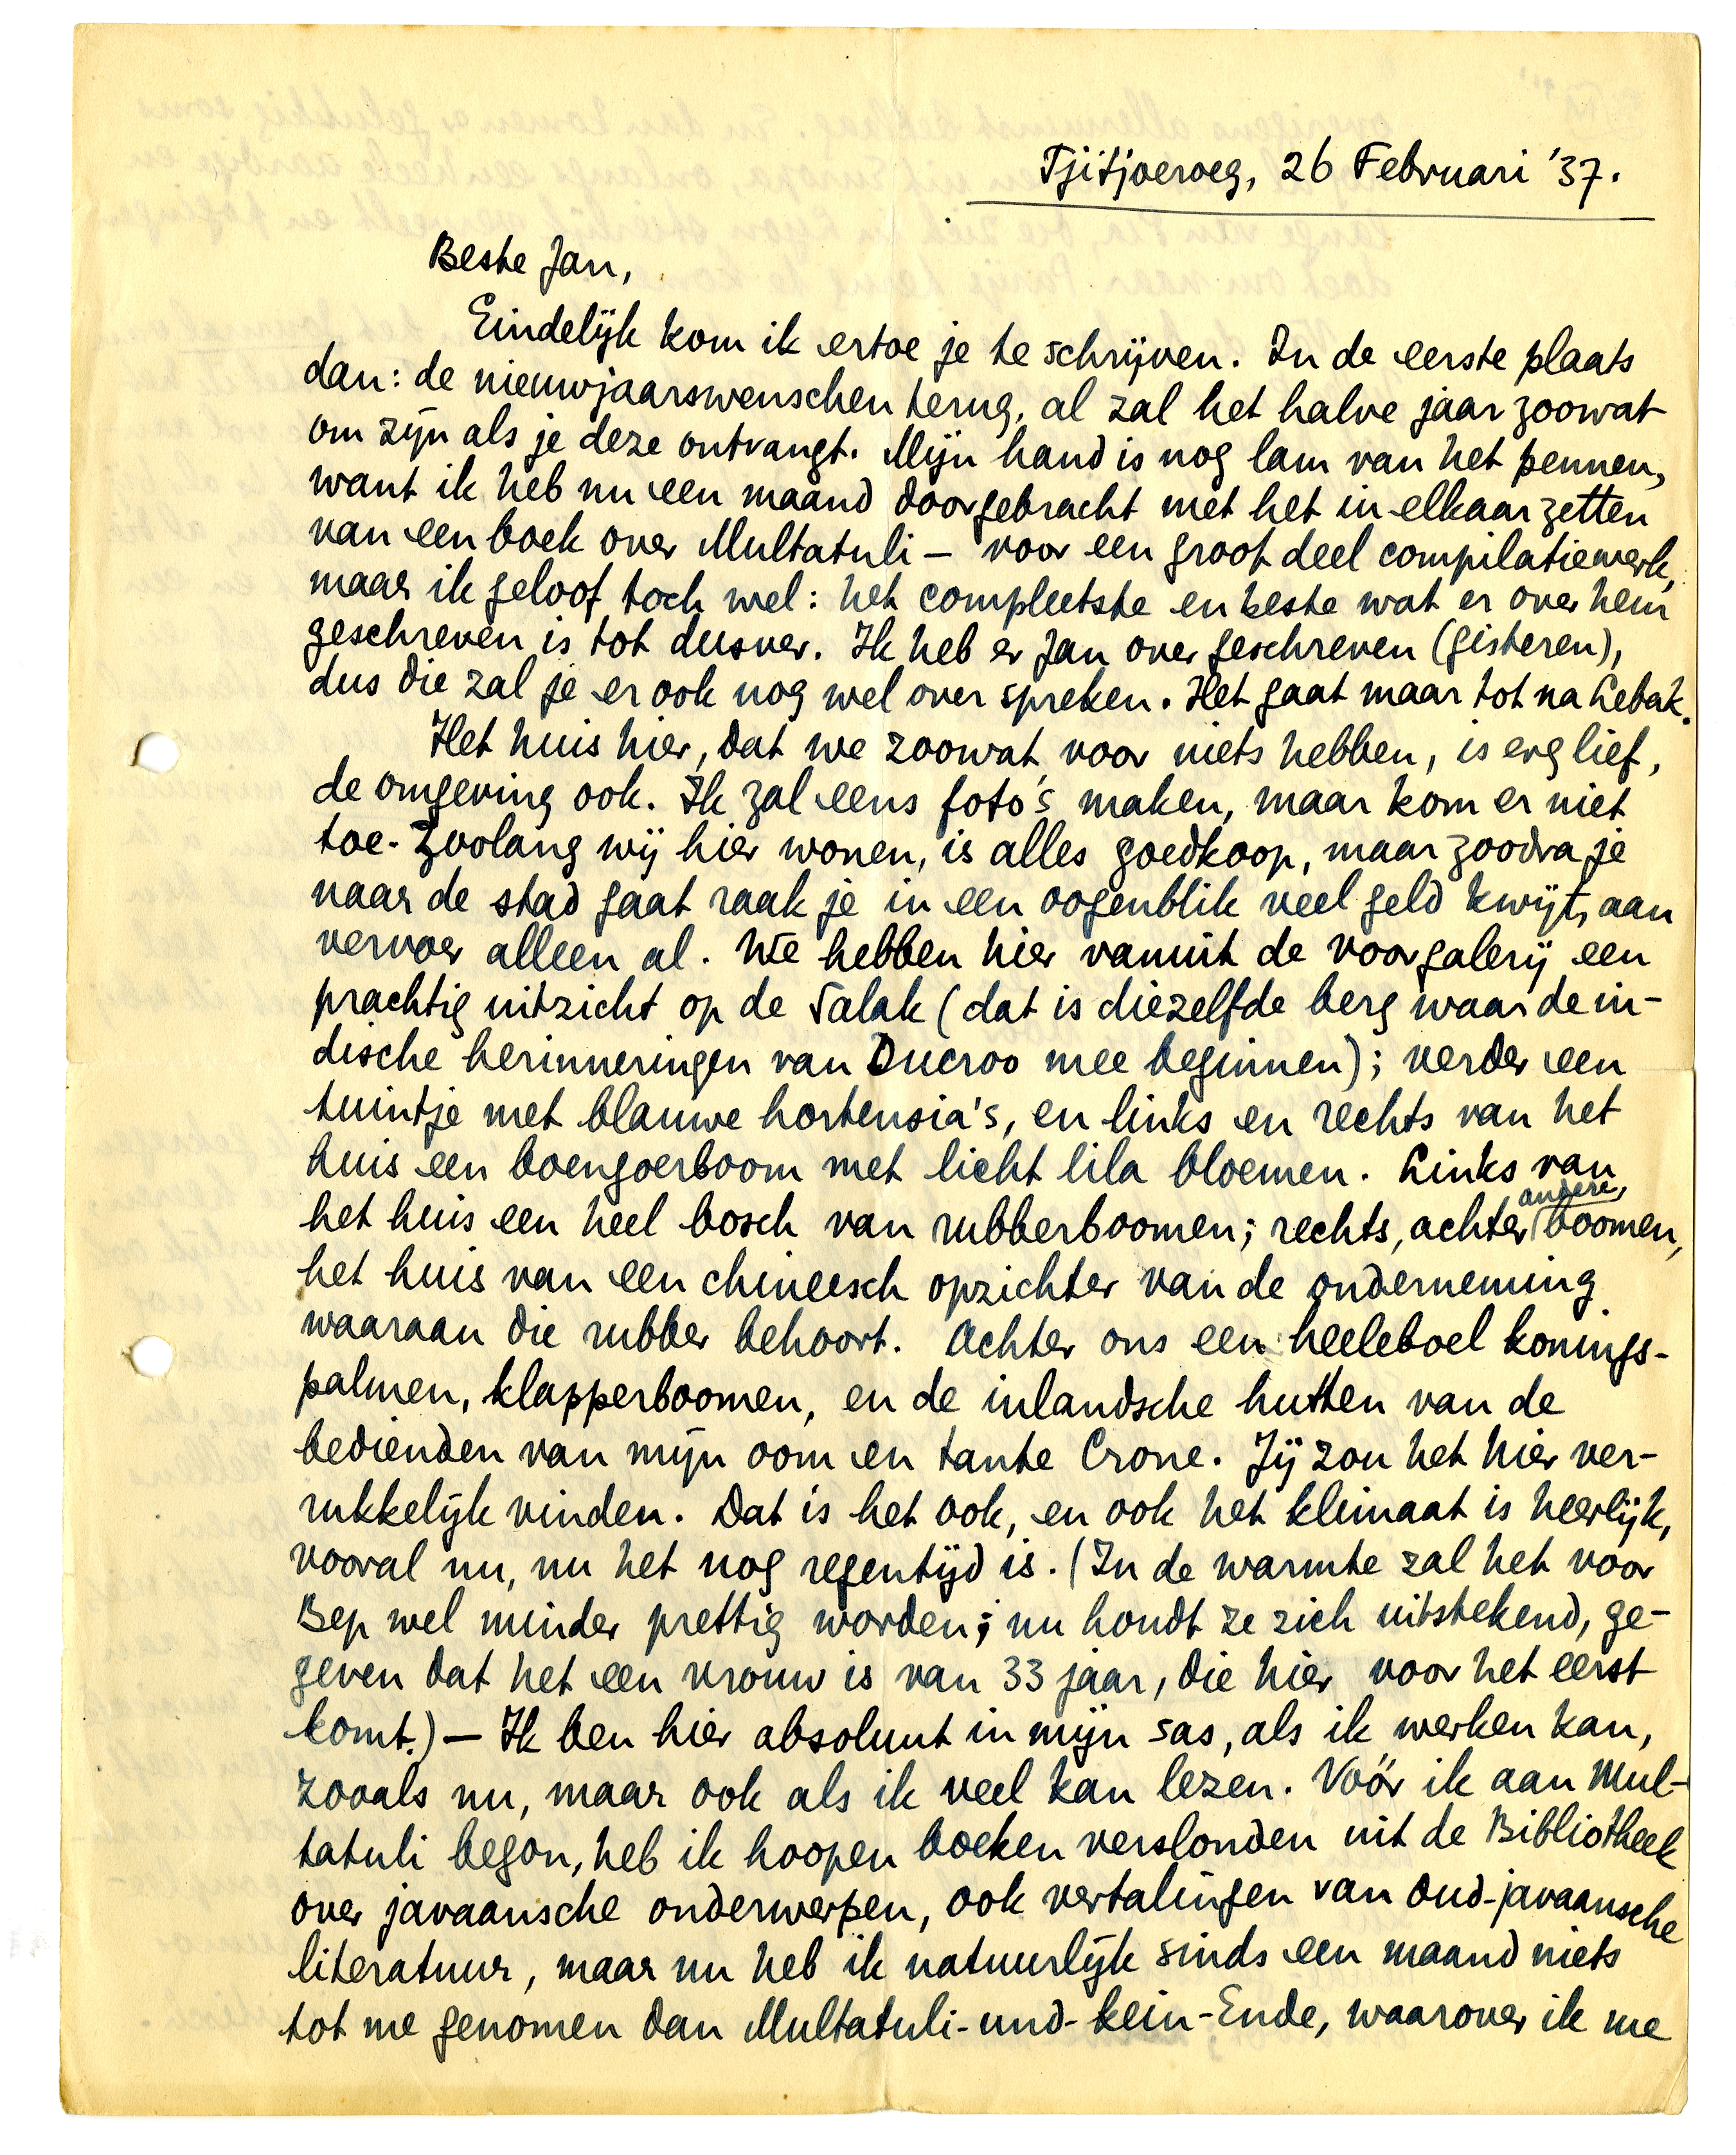 Tjitjoeroeg, 26 Februari '37.
Beste Jan,
Eindelijk kom ik ertoe je te schrijven. In de eerste plaats
dan: de nieuwjaarswenschen terug, al zal het halve jaar zoowat
om zijn als je deze ontvangt. Mijn hand is nog lam van het pennen,
want ik heb nu een maand doorgebracht met het in elkaar zetten
van een boek over Multatuli – voor een groot deel compilatiewerk,
maar ik geloof toch wel: het compleetste en beste wat er over hem
geschreven is tot dusver. Ik heb er Jan over geschreven (gisteren),
dus die zal je er ook nog wel over spreken. Het gaat maar tot na Lebak.
Het huis hier, dat we zoowat voor niets hebben, is erg lief,
de omgeving ook. Ik zal eens foto's maken, maar kom er niet
toe. Zoolang wij hier wonen, is alles goedkoop, maar zoodra je
naar de stad gaat raak je in een oogenblik veel geld kwijt, aan
vervoer alleen al. We hebben hier vanuit de voorgalerij een
prachtig uitzicht op de Salak (dat is diezelfde berg waar de in-
dische herinneringen van Ducroo mee beginnen); verder een
tuintje met blauwe hortensia's, en links en rechts van het
huis een boengoerboom met licht lila bloemen. Links van
het huis een heel bosch van rubberboomen; rechts, achter andere, boomen,
het huis van een chineesch opzichter van de onderneming
waaraan die rubber behoort. Achter ons een heeleboel konings-
palmen, klapperboomen, en de inlandsche hutten van de
bedienden van mijn oom en tante Crone. Jij zou het hier ver-
rukkelijk vinden. Dat is het ook, en ook het klimaat is heerlijk,
vooral nu, nu het nog regentijd is. (In de warmte zal het voor
Bep wel minder prettig worden; nu houdt ze zich uitstekend, ge-
geven dat het een vrouw is van 33 jaar, die hier voor het eerst
komt.) – Ik ben hier absoluut in mijn sas, als ik werken kan,
zooals nu, maar ook als ik veel kan lezen. Vóór ik aan Mul-
tatuli begon, heb ik hoopen boeken verslonden uit de Bibliotheek
over javaansche onderwerpen, ook vertalingen van oud-javaansche
literatuur, maar nu heb ik natuurlijk sinds een maand niets
tot me genomen dan Multatuli-und-kein-Ende, waarover ik me